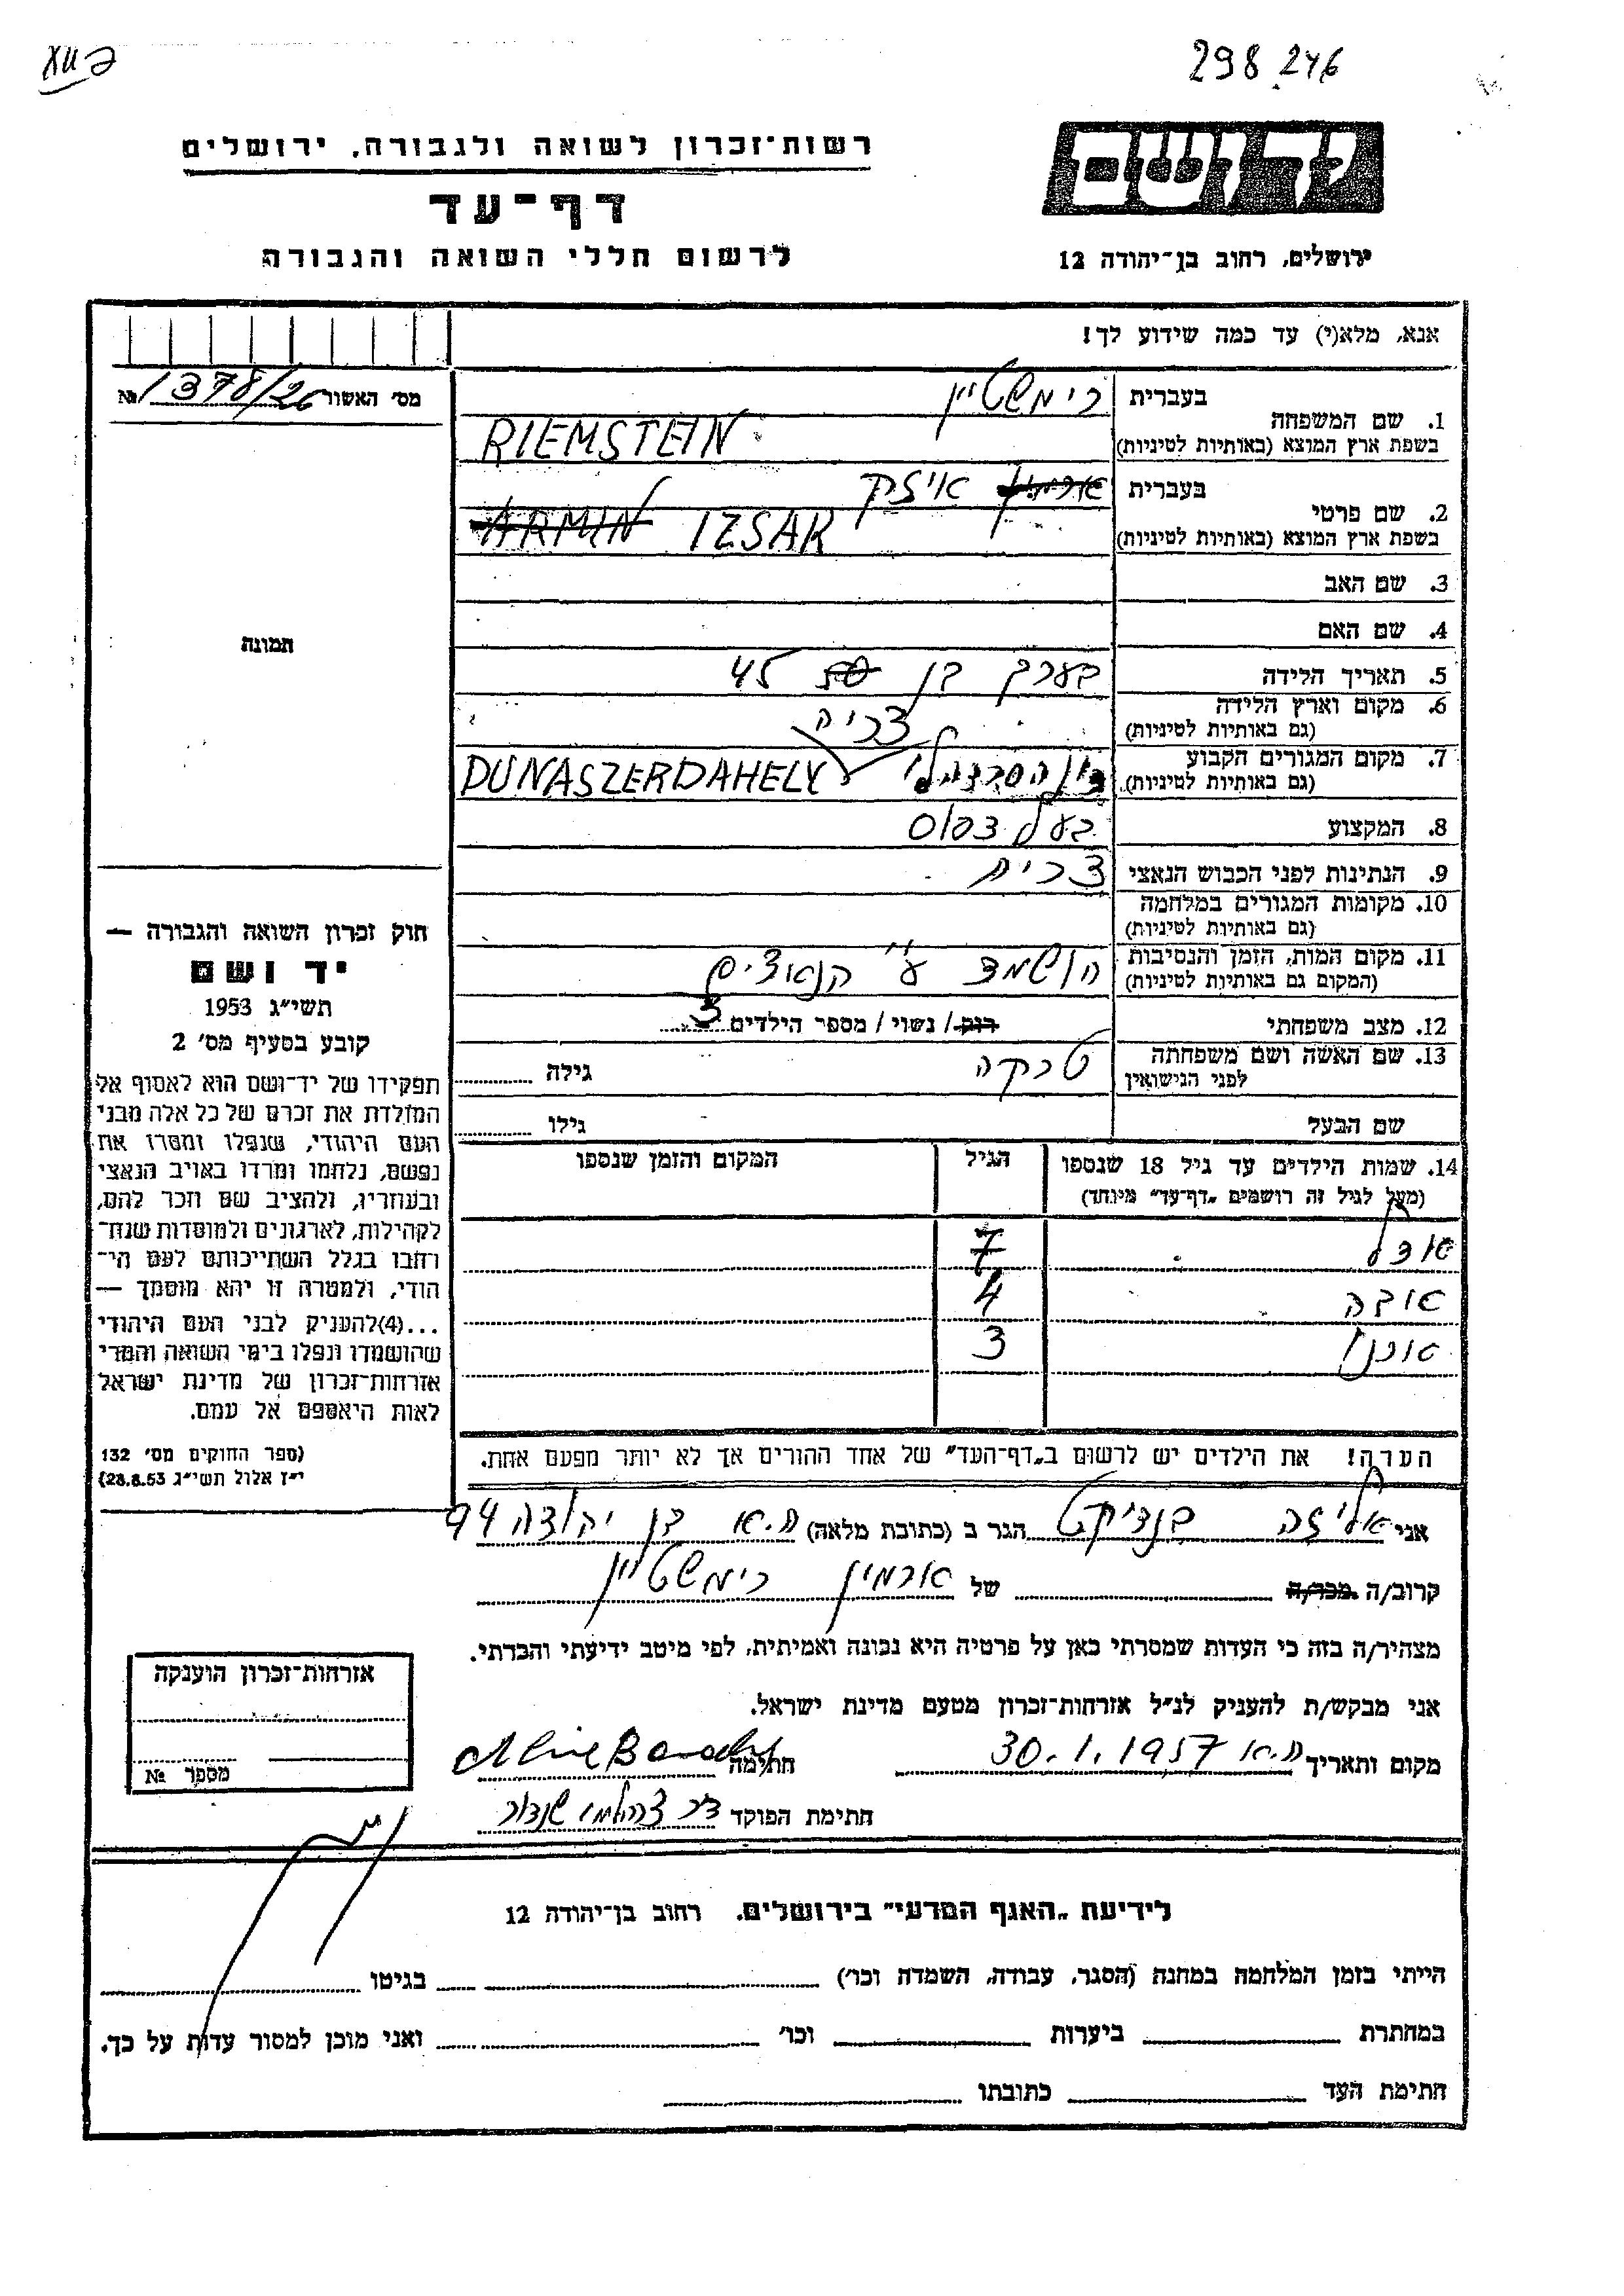 298 246
רשות־זכרון לשואה ולגבורה, ירושלים
ידושם
דף־עד
לרשום חללי השואה והגבורה
ירושלים, רחוב בן־יהודה 12
אנא, מלא(י) עד כמה שידוע לך!
מס׳ האשור № 1378/26
1. שם המשפחה
בעברית רימשטיין
בשפת ארץ המוצא (באותיות לטיניות) RIEMSTEIN
2. שם פרטי
בעברית ארמין איזק
בשפת ארץ המוצא (באותיות לטיניות) ARMIN IZSAK
3. שם האב
4. שם האם
תמונה
5. תאריך הלידה בערך בן 45
6. מקום וארץ הלידה
(גם באותיות לטיניות)
צ׳כיה
7. מקום המגורים הקבוע
(גם באותיות לטיניות)
DUNASZERDAHELY
8. המקצוע
9. הנתינות לפני הכבוש הנאצי צ׳כית
10. מקומות המגורים במלחמה
(גם באותיות לטיניות)
11. מקום המות, הזמן והנסיבות
(המקום גם באותיות לטיניות)
הושמד ע״י הנאצים
12. מצב משפחתי רוק / נשוי / מספר הילדים 3
13. שם האשה ושם משפחתה
לפני הנישואין
גילה
שם הבעל גילו
14. שמות הילדים עד גיל 18 שנספו
(מעל לגיל זה רושמים „דף־עד״ מיוחד)
הגיל
המקום והזמן שנספו
7
4
3
הערה! את הילדים יש לרשום ב„דף־העד״ של אחד ההורים אך לא יותר מפעם אחת.
חוק זכרון השואה והגבורה —
יד ושם
תשי״ג 1953
קובע בסעיף מס׳ 2
תפקידו של יד־ושם הוא לאסוף אל
המולדת את זכרם של כל אלה מבני
העם היהודי, שנפלו ומסרו את
נפשם, נלחמו ומרדו באויב הנאצי
ובעוזריו, ולהציב שם וזכר להם,
לקהילות, לארגונים ולמוסדות שנח־
רבו בגלל השתייכותם לעם הי־
הודי, ולמטרה זו יהא מוסמך —
...(4)להעניק לבני העם היהודי
שהושמדו ונפלו בימי השואה והמרי
אזרחות־זכרון של מדינת ישראל
לאות היאספם אל עמם.
(ספר החוקים מס׳ 132
י״ז אלול תשי״ג 28.8.53)
אני אליזה בנדיקט הגר ב (כתובת מלאה) ת.א בן יהודה 94
קרוב/ה מכר/ה של ארמין רימשטיין
מצהיר/ה בזה כי העדות שמסרתי כאן על פרטיה היא נכונה ואמיתית, לפי מיטב ידיעתי והכרתי.
אני מבקש/ת להעניק לנ״ל אזרחות־זכרון מטעם מדינת ישראל.
מקום ותאריך ת.א 30.1.1957 חתימה
חתימת הפוקד
אזרחות־זכרון הוענקה
מספר №
לידיעת „האגף המדעי״ בירושלים, רחוב בן־יהודה 12
הייתי בזמן המלחמה במחנה (הסגר, עבודה, השמדה וכו׳) בגיטו
במחתרת ביערות וכו׳ ואני מוכן למסור עדות על כך.
חתימת העד כתובתו